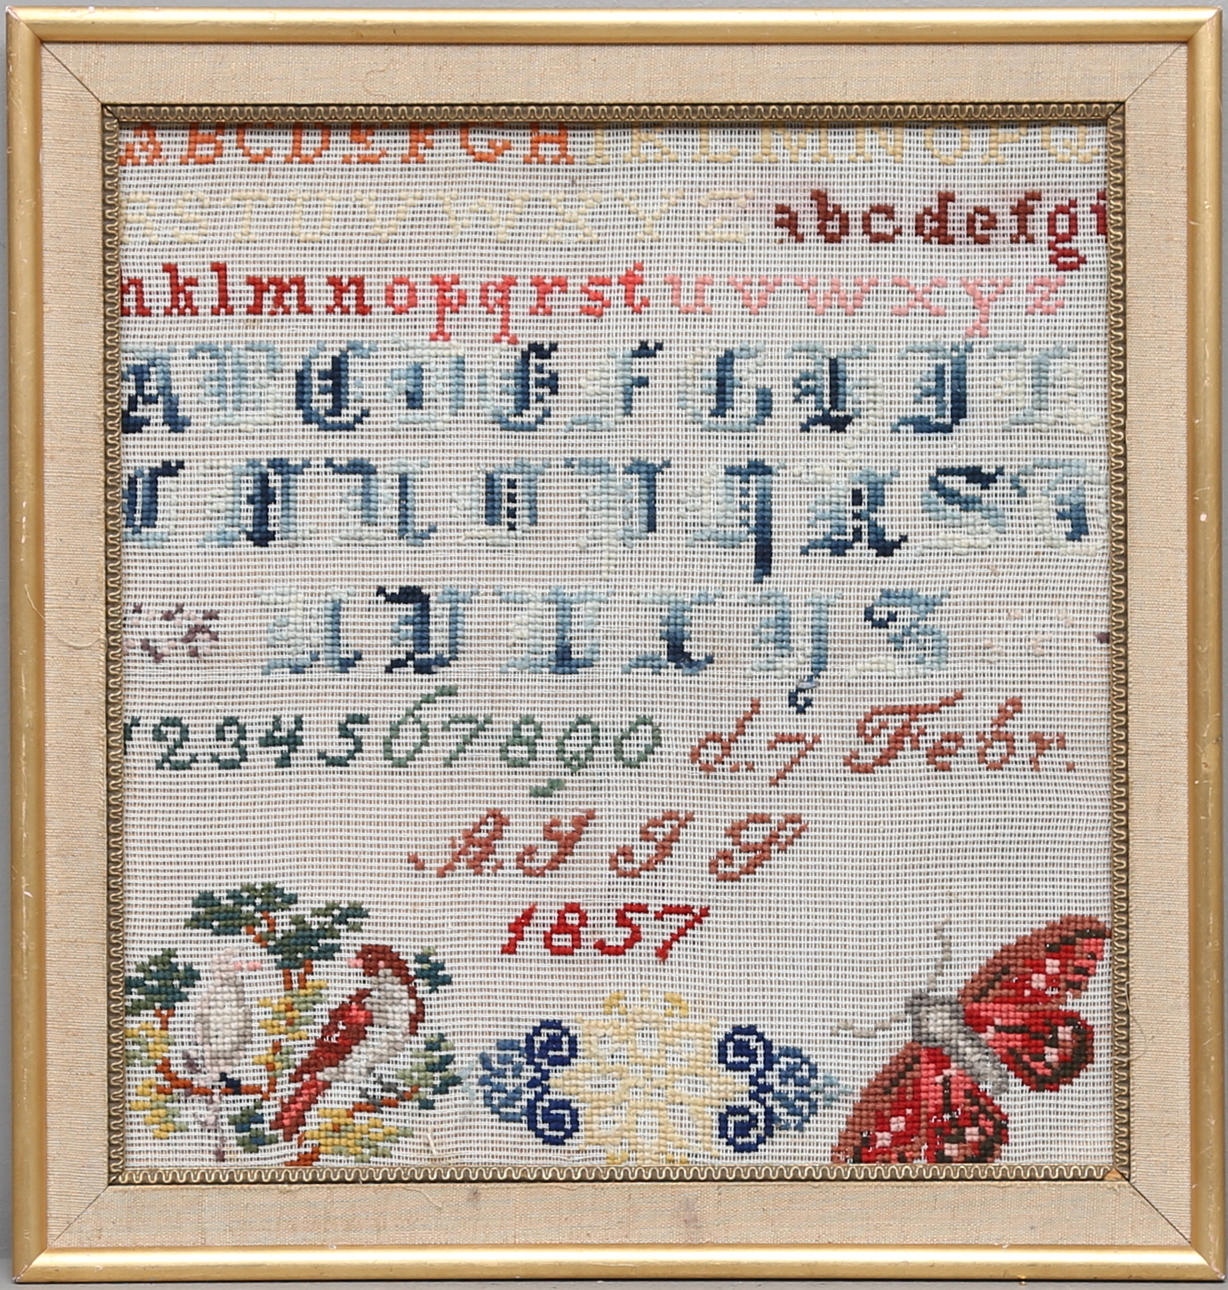 ABCDEFGHIKLMNOPQ
RSTUVWXYZ abcdefg
klmnopqrstuvwxyz
ABCDEFGHIK
LMNOPQRST
UVWXYZ
1234567890 d. 7 Febr.
1857